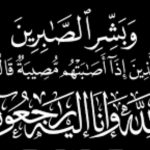 وَبَشِّرِ الصَّـٰبِرِينَ
لَّذِينَ إِذَآ أَصَـٰبَتْهُم مُّصِيبَةٌ قَالُ
لله وإنا إليه راجعون